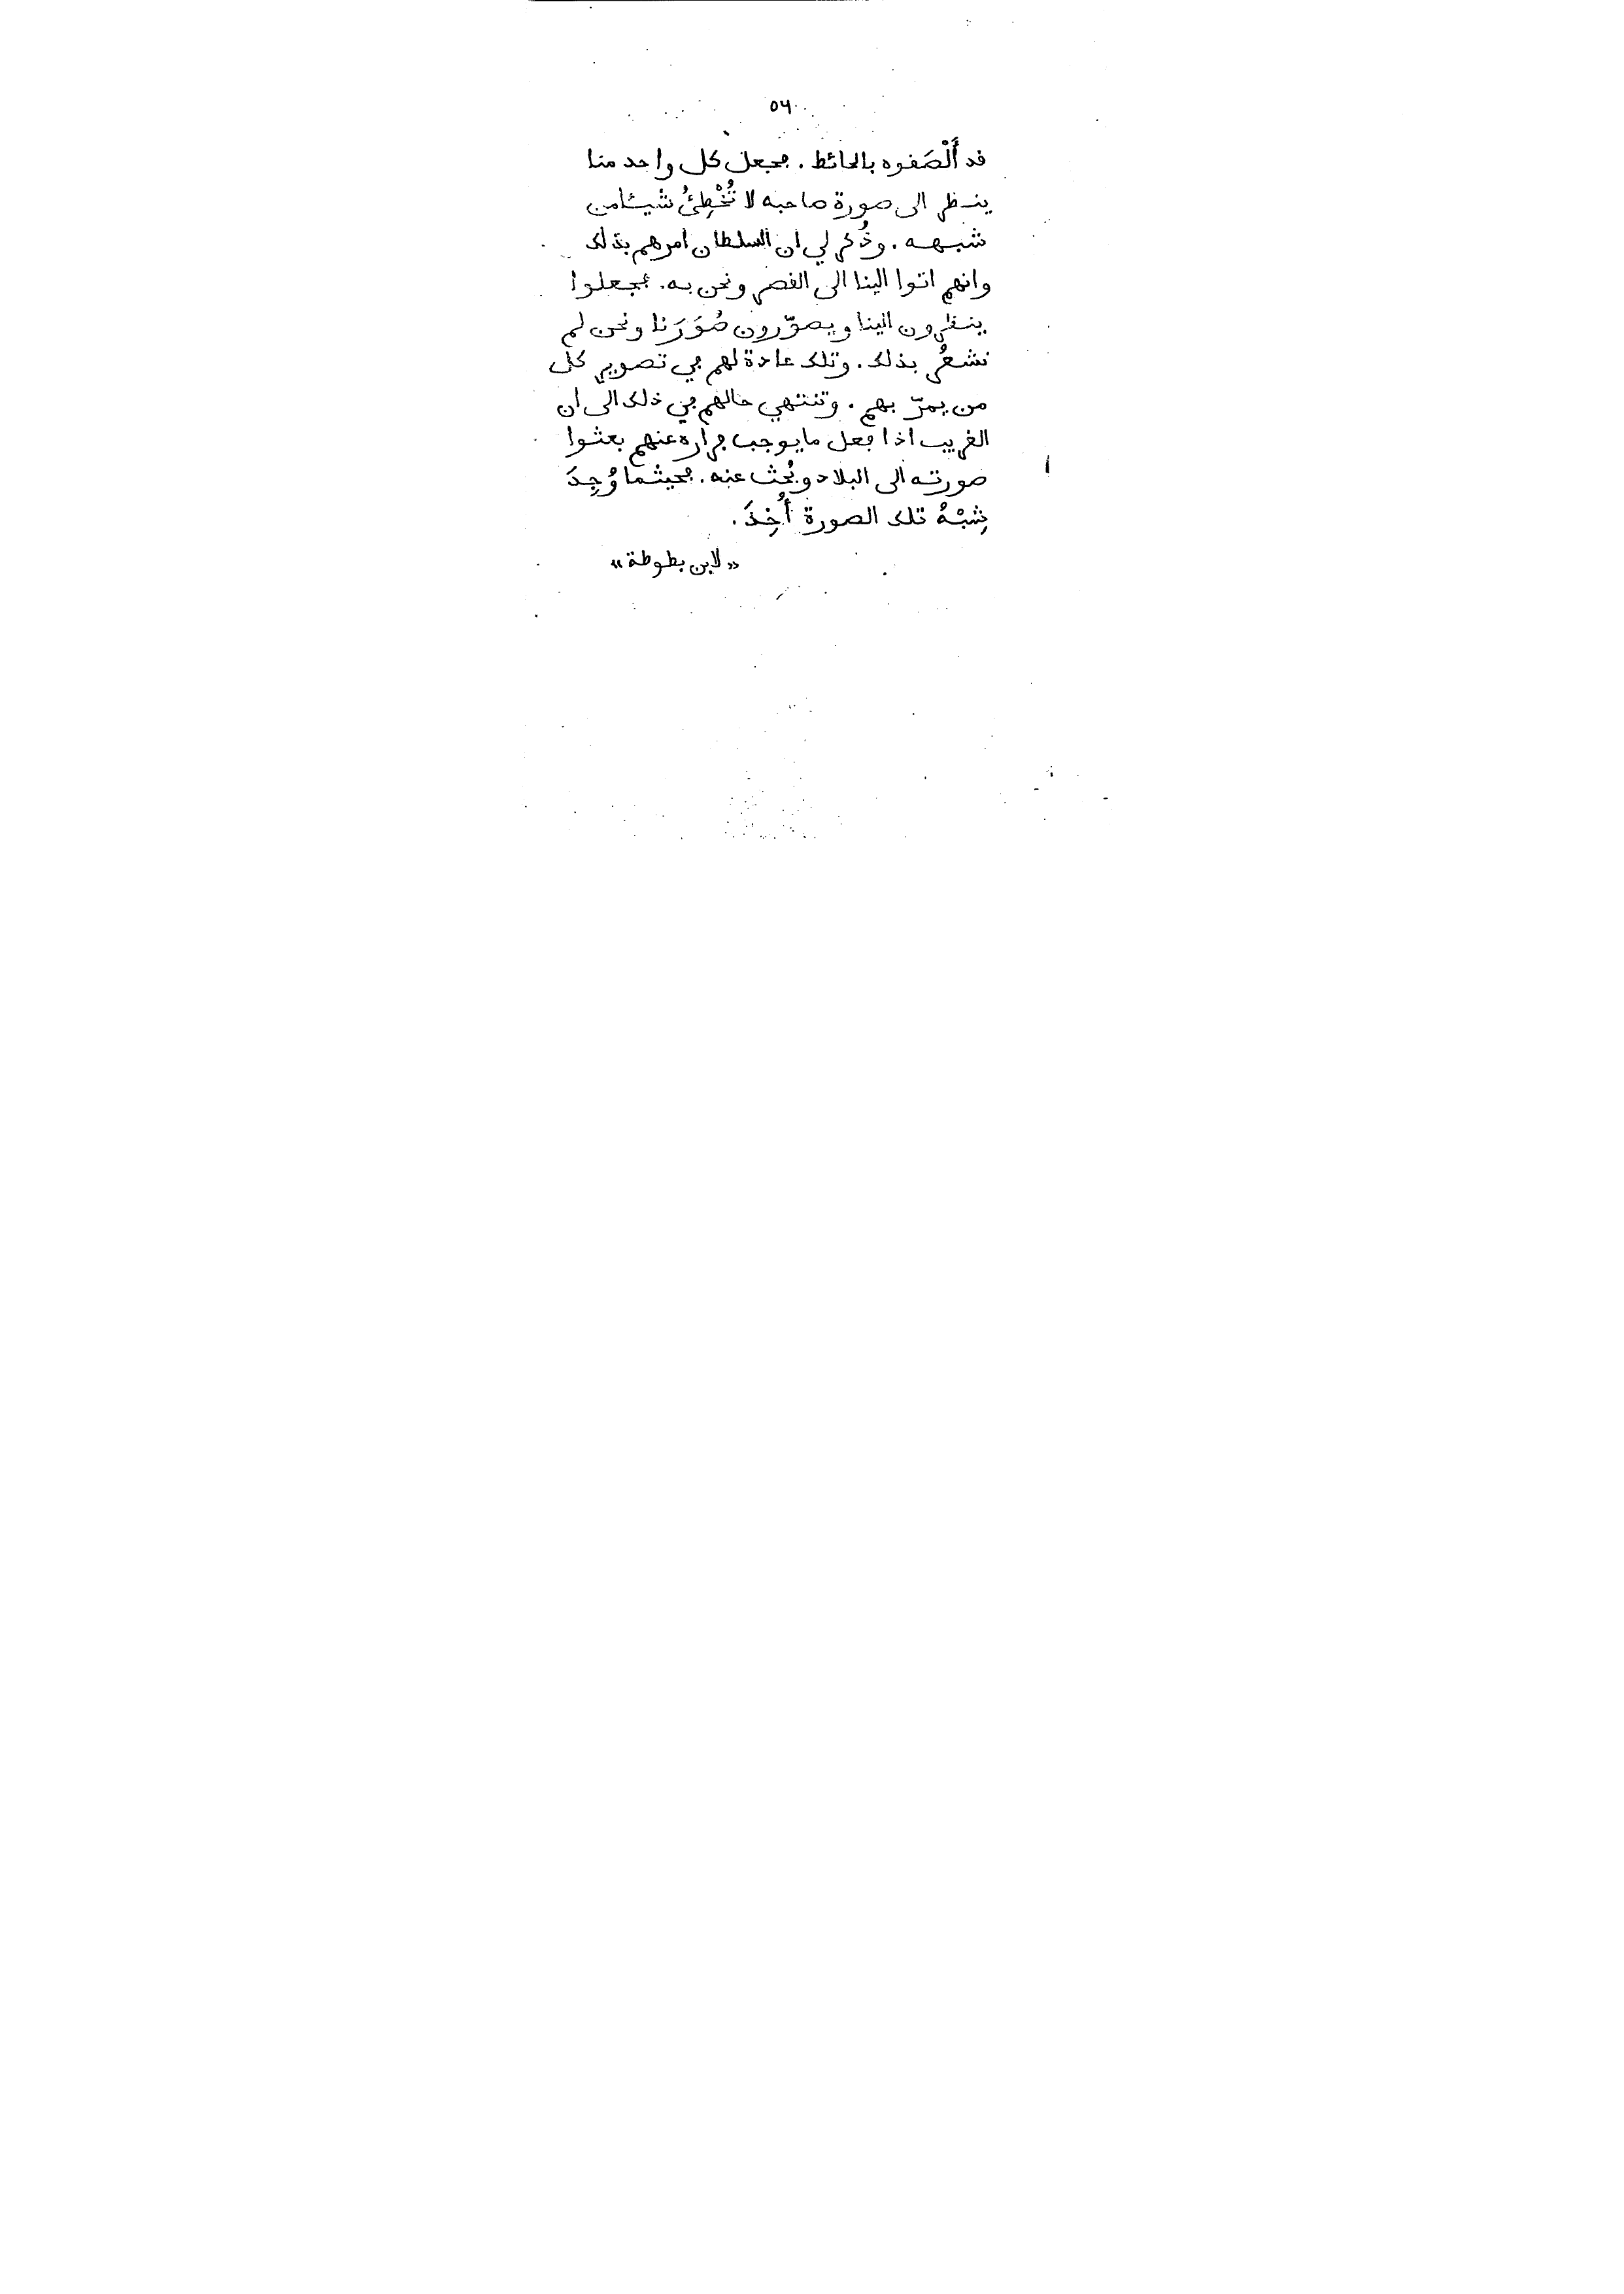 ٥٦
قد أَلْصَقوه بالحائط. فجعل كل واحد منا
ينظر الى صورة صاحبه لا تُخْطِئُ شيئا من
شبهه. وذُكر لي ان السلطان امرهم بذلك
وانهم اتوا الينا الى القصر ونحن به. فجعلوا
ينظرون الينا ويصوّرون صُوَرَنا ونحن لم
نشعُر بذلك. وتلك عادة لهم في تصوير كل
من يمرّ بهم. وتنتهي حالهم في ذلك الى ان
الغريب اذا فعل ما يوجب فراره عنهم بعثوا
صورته الى البلاد وبُحث عنه. فحيثما وُجِدَ
شِبْهُ تلك الصورة أُخِذَ.
«لابن بطوطة»